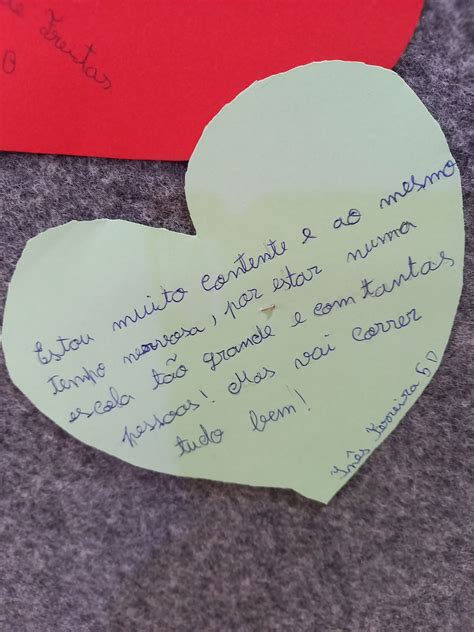 de Freitas
Estou muito contente e ao mesmo
tempo nervosa, por estar numa
escola tão grande e com tantas
pessoas! Mas vai correr
tudo bem!
Inês Ferreira 5D